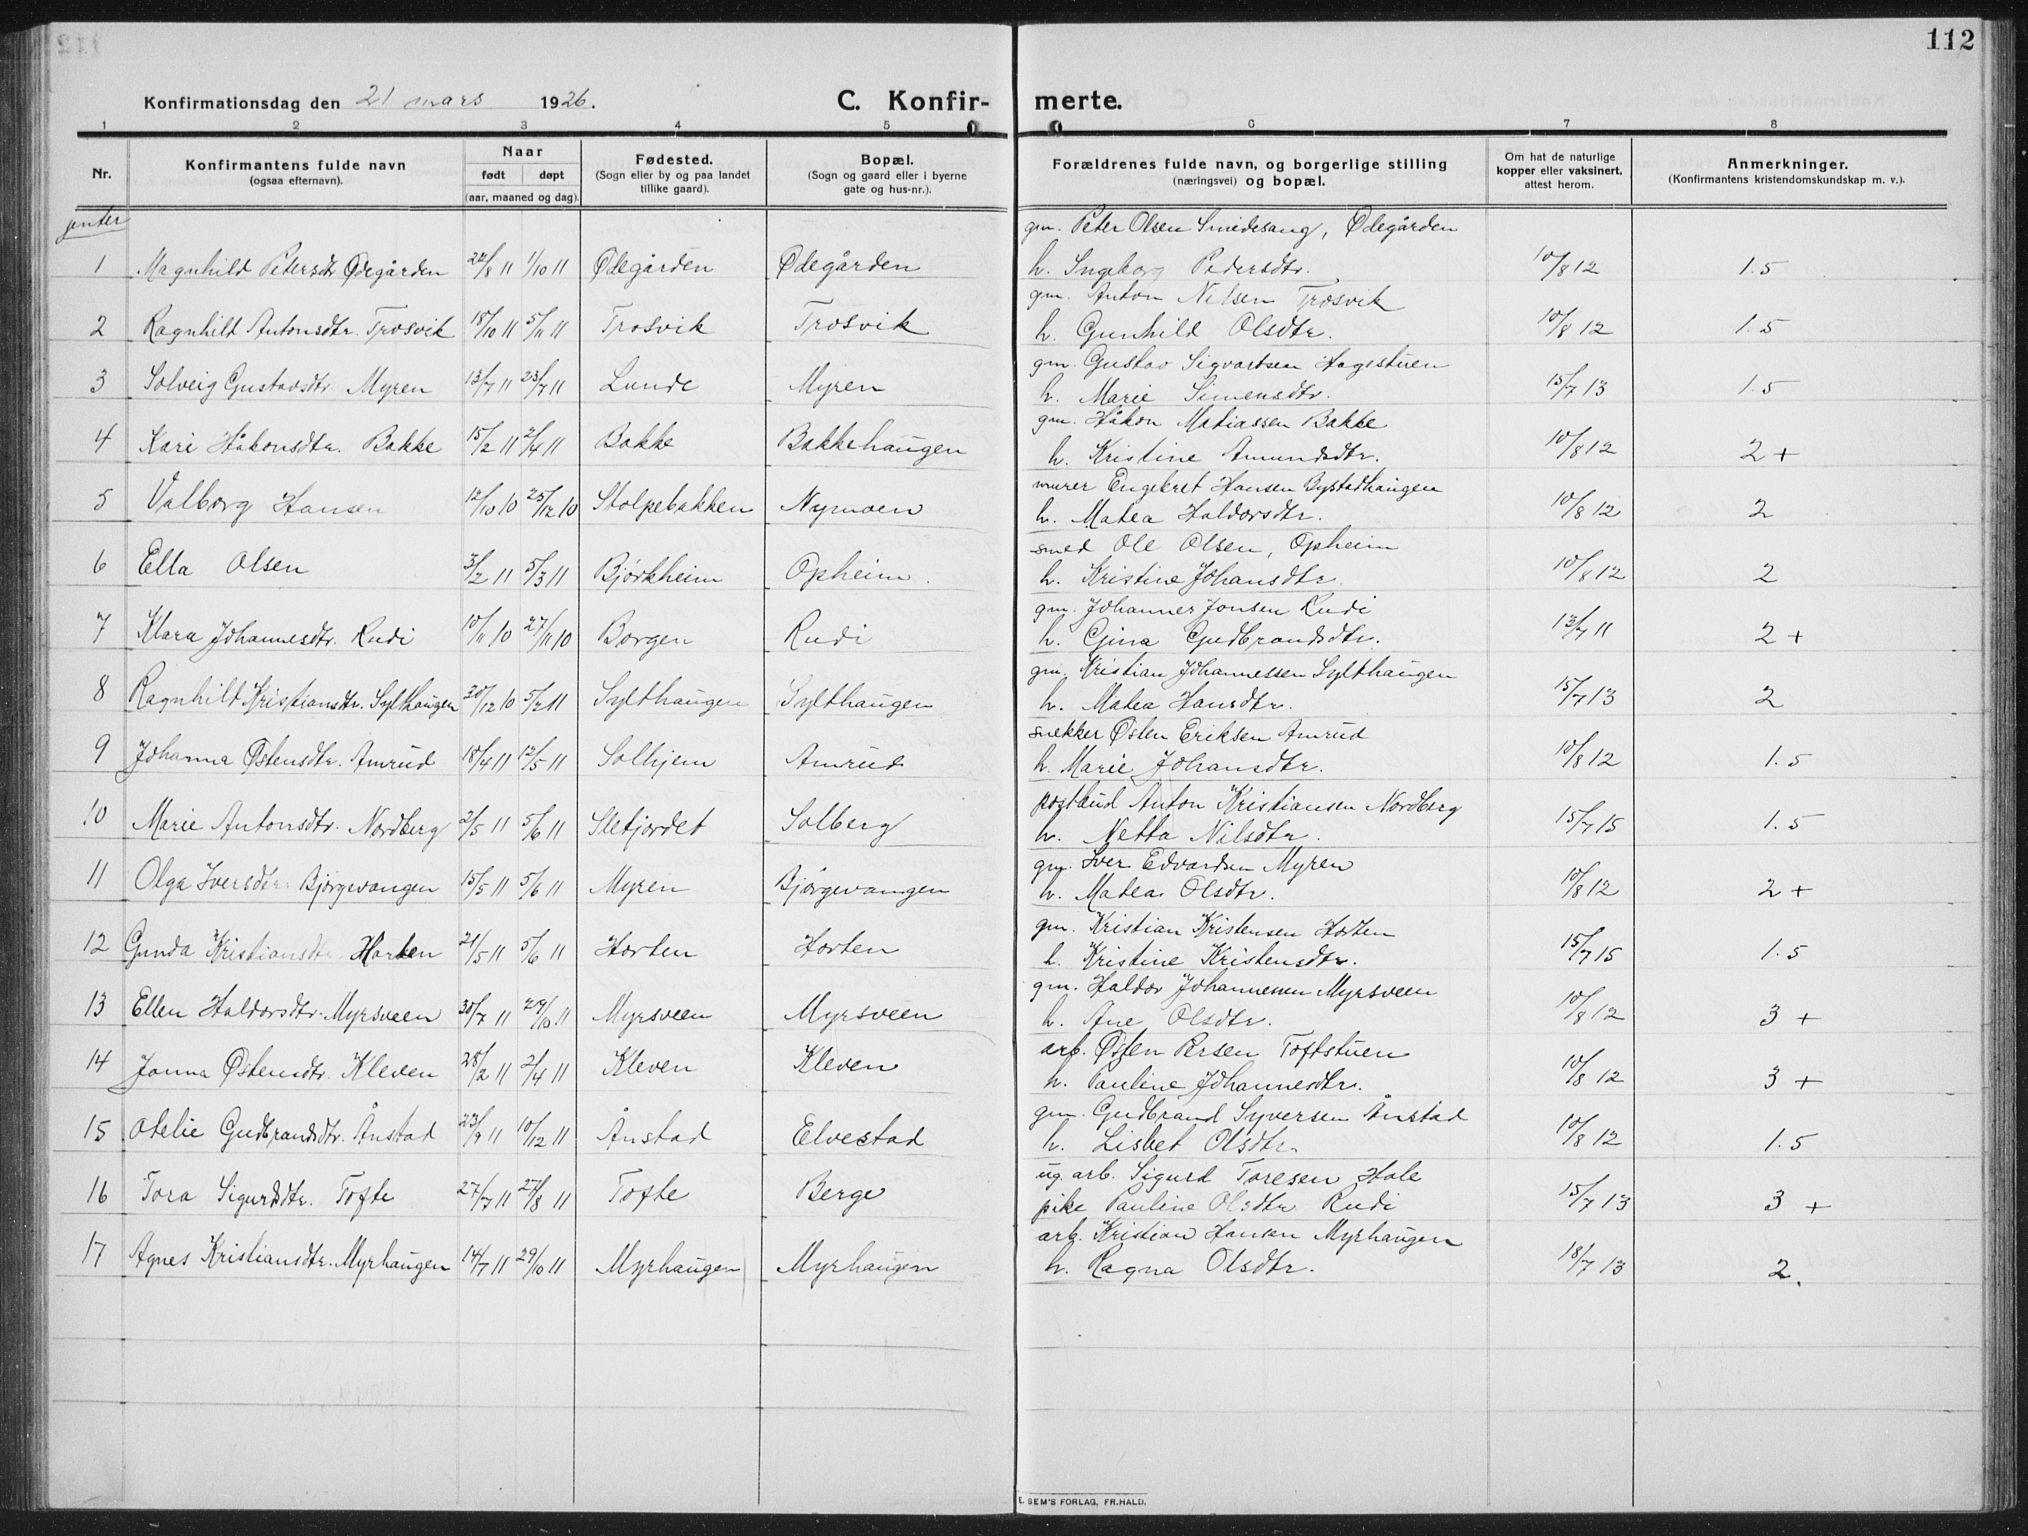 112
Konfirmationsdag den 21 mars 1926.
C. Konfir- merte.
1 2 3 4 5 6 7 8
Nr.
Konfirmantens fulde navn
(ogsaa efternavn).
Naar
født døpt
(aar, maaned og dag).
Fødested.
(Sogn eller by og paa landet
tillike gaard).
Bopæl.
(Sogn og gaard eller i byerne
gate og hus-nr.).
Forældrenes fulde navn, og borgerlige stilling
(næringsvei) og bopæl.
Om hat de naturlige
kopper eller vaksinert,
attest herom.
Anmerkninger.
(Konfirmantens kristendomskundskap m. v.).
jenter
gm. Peter Olsen Smedesang, Ødegården
1 Magnhild Petersdtr Ødegården 24/8 11 1/10 11 Ødegården Ødegården h. Ingeborg Pedersdtr. 10/8 12 1.5
gm. Anton Nilsen Trosvik
2 Ragnhild Antonsdtr. Trosvik 18/10 11 5/11 11 Trosvik Trosvik h. Gunhild Olsdtr. 10/8 12 1.5
gm. Gustav Sigvartsen Hagestuen
3 Solveig Gustavsdtr. Myren 13/7 11 23/7 11 Lunde Myren h. Marie Simensdtr. 15/7 13 1.5
gm. Håkon Matiassen Bakke
4 Kari Håkonsdtr. Bakke 15/2 11 2/4 11 Bakke Bakkehaugen h. Kristine Amundsdtr. 10/8 12 2 +
murer Engebret Hansen Bystadhaugen
5 Valborg Hansen 12/10 10 25/12 10 Stolpebakken Nymoen h. Matea Haldorsdtr. 10/8 12 2
smed Ole Olsen, Opheim
6 Ella Olsen 3/2 11 5/3 11 Bjørkheim Opheim. h. Kristine Johansdtr. 10/8 12 2
gm. Johannes Jonsen Rudi
7 Klara Johannesdtr. Rudi 10/11 10 27/11 10 Borgen Rudi h. Gina Gudbrandsdtr. 13/7 11 2 +
gm. Kristian Johannessen Sylthaugen
8 Ragnhild Kristiansdtr. Sylthaugen 30/12 10 5/2 11 Sylthaugen Sylthaugen h. Matea Hansdtr. 15/7 13 2
snekker Østen Eriksen Amrud
9 Johanna Østensdtr. Amrud 18/4 11 12/5 11 Solhjem Amrud h. Marie Johansdtr. 10/8 12 1.5
postbud Anton Kristiansen Nordberg
10 Marie Antonsdtr. Nordberg 2/5 11 5/6 11 Sletjordet Solberg h. Netta Nilsdtr. 15/7 15 1.5
gm. Iver Edvardsen Myren
11 Olga Iversdtr. Bjørgevangen 15/5 11 5/6 11 Myren Bjørgevangen h. Matea Olsdtr. 10/8 12 2 +
gm. Kristian Kristensen Horten
12 Gunda Kristiansdtr. Horten 21/5 11 5/6 11 Horten Horten h. Kristine Kristensdtr. 15/7 15 1.5
gm. Haldor Johannessen Myrsveen
13 Ellen Haldorsdtr. Myrsveen 30/7 11 29/10 11 Myrsveen Myrsveen h. Ane Olsdtr. 10/8 12 3 +
arb. Østen Persen Toftstuen
14 Jonna Østensdtr. Kleven 28/2 11 2/4 11 Kleven Kleven h. Pauline Johannesdtr. 10/8 12 3 +
gm. Gudbrand Syversen Ånstad
15 Otelie Gudbrandsdtr. Ånstad 23/9 11 10/12 11 Ånstad Elvestad h. Lisbet Olsdtr. 10/8 12 1.5
ug. arb. Sigurd Toresen Hole
16 Tora Sigurdsdtr. Tofte 27/7 11 27/8 11 Tofte Berge pike Pauline Olsdtr Rudi 15/7 13 3 +
arb. Kristian Hansen Myrhaugen
17 Agnes Kristiansdtr. Myrhaugen 14/7 11 29/10 11 Myrhaugen Myrhaugen h. Ragna Olsdtr. 18/7 13 2.
E. SEM'S FORLAG, FR.HALD.